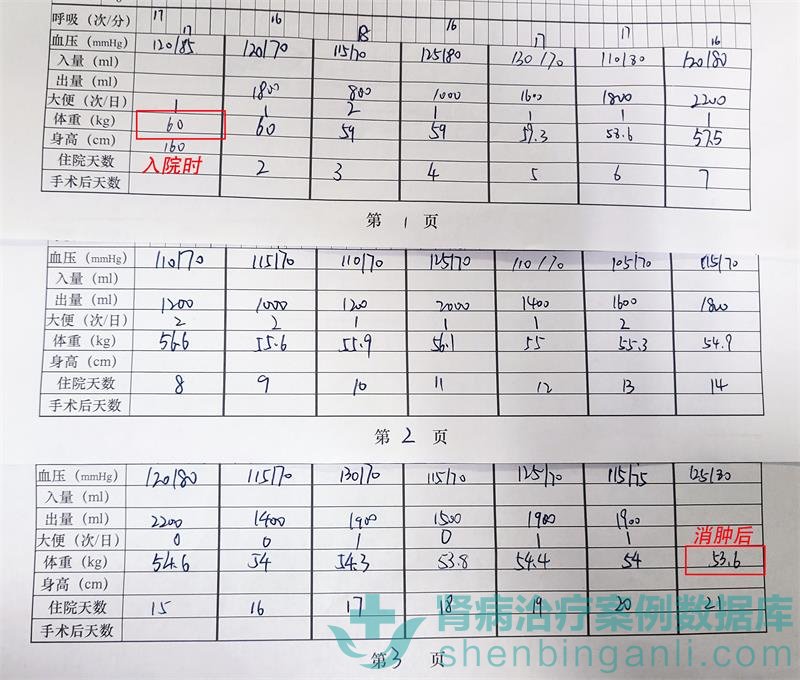 呼吸（次/分） 17 17 16 18 16 17 17 16
血压（mmHg） 120/85 120/70 115/70 125/80 130/70 110/80 120/80
入量（ml）
出量（ml） 1800 800 1000 1600 1800 2200
大便（次/日） 1 1 2 1 1 1 1
体重（kg） 60 60 59 59 57.3 58.6 57.5
身高（cm） 160
住院天数 入院时 2 3 4 5 6 7
手术后天数
第 1 页
血压（mmHg） 110/70 115/70 110/70 125/70 110/70 105/70 115/70
入量（ml）
出量（ml） 1200 1000 1200 2000 1400 1600 1800
大便（次/日） 2 2 1 1 1 2
体重（kg） 56.6 55.6 55.9 56.1 55 55.3 54.9
身高（cm）
住院天数 8 9 10 11 12 13 14
手术后天数
第 2 页
血压（mmHg） 120/80 115/70 130/70 115/70 125/70 115/75 125/80
入量（ml）
出量（ml） 2200 1400 1900 1500 1900 1900
大便（次/日） 0 0 1 0 1 1 消肿后
体重（kg） 54.6 54 54.3 53.8 54.4 54 53.6
身高（cm）
住院天数 15 16 17 18 19 20 21
手术后天数
肾病治疗案例数据库
shenbinganli.com
第 3 页